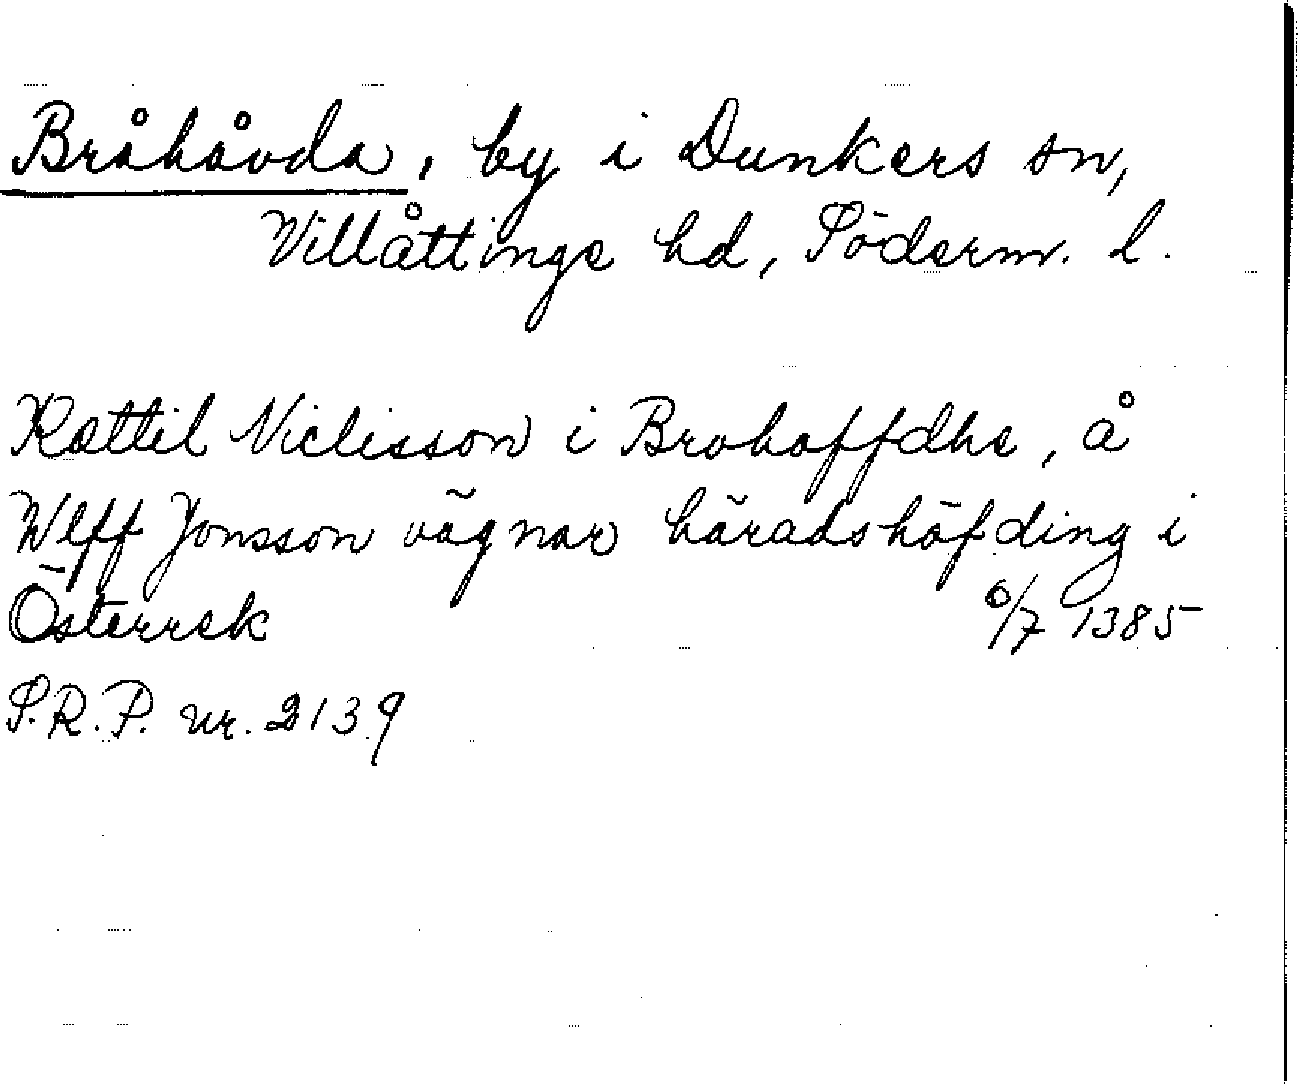 Bråhåvda, by i Dunkers sn,
Villåttinge hd, Söderm. l.
Kættil Niclisson i Brohaffdhe, å
Wlff Jonsson vägnar häradshöfding i
Österrek 6/7 1385
S.R.P. nr. 2139